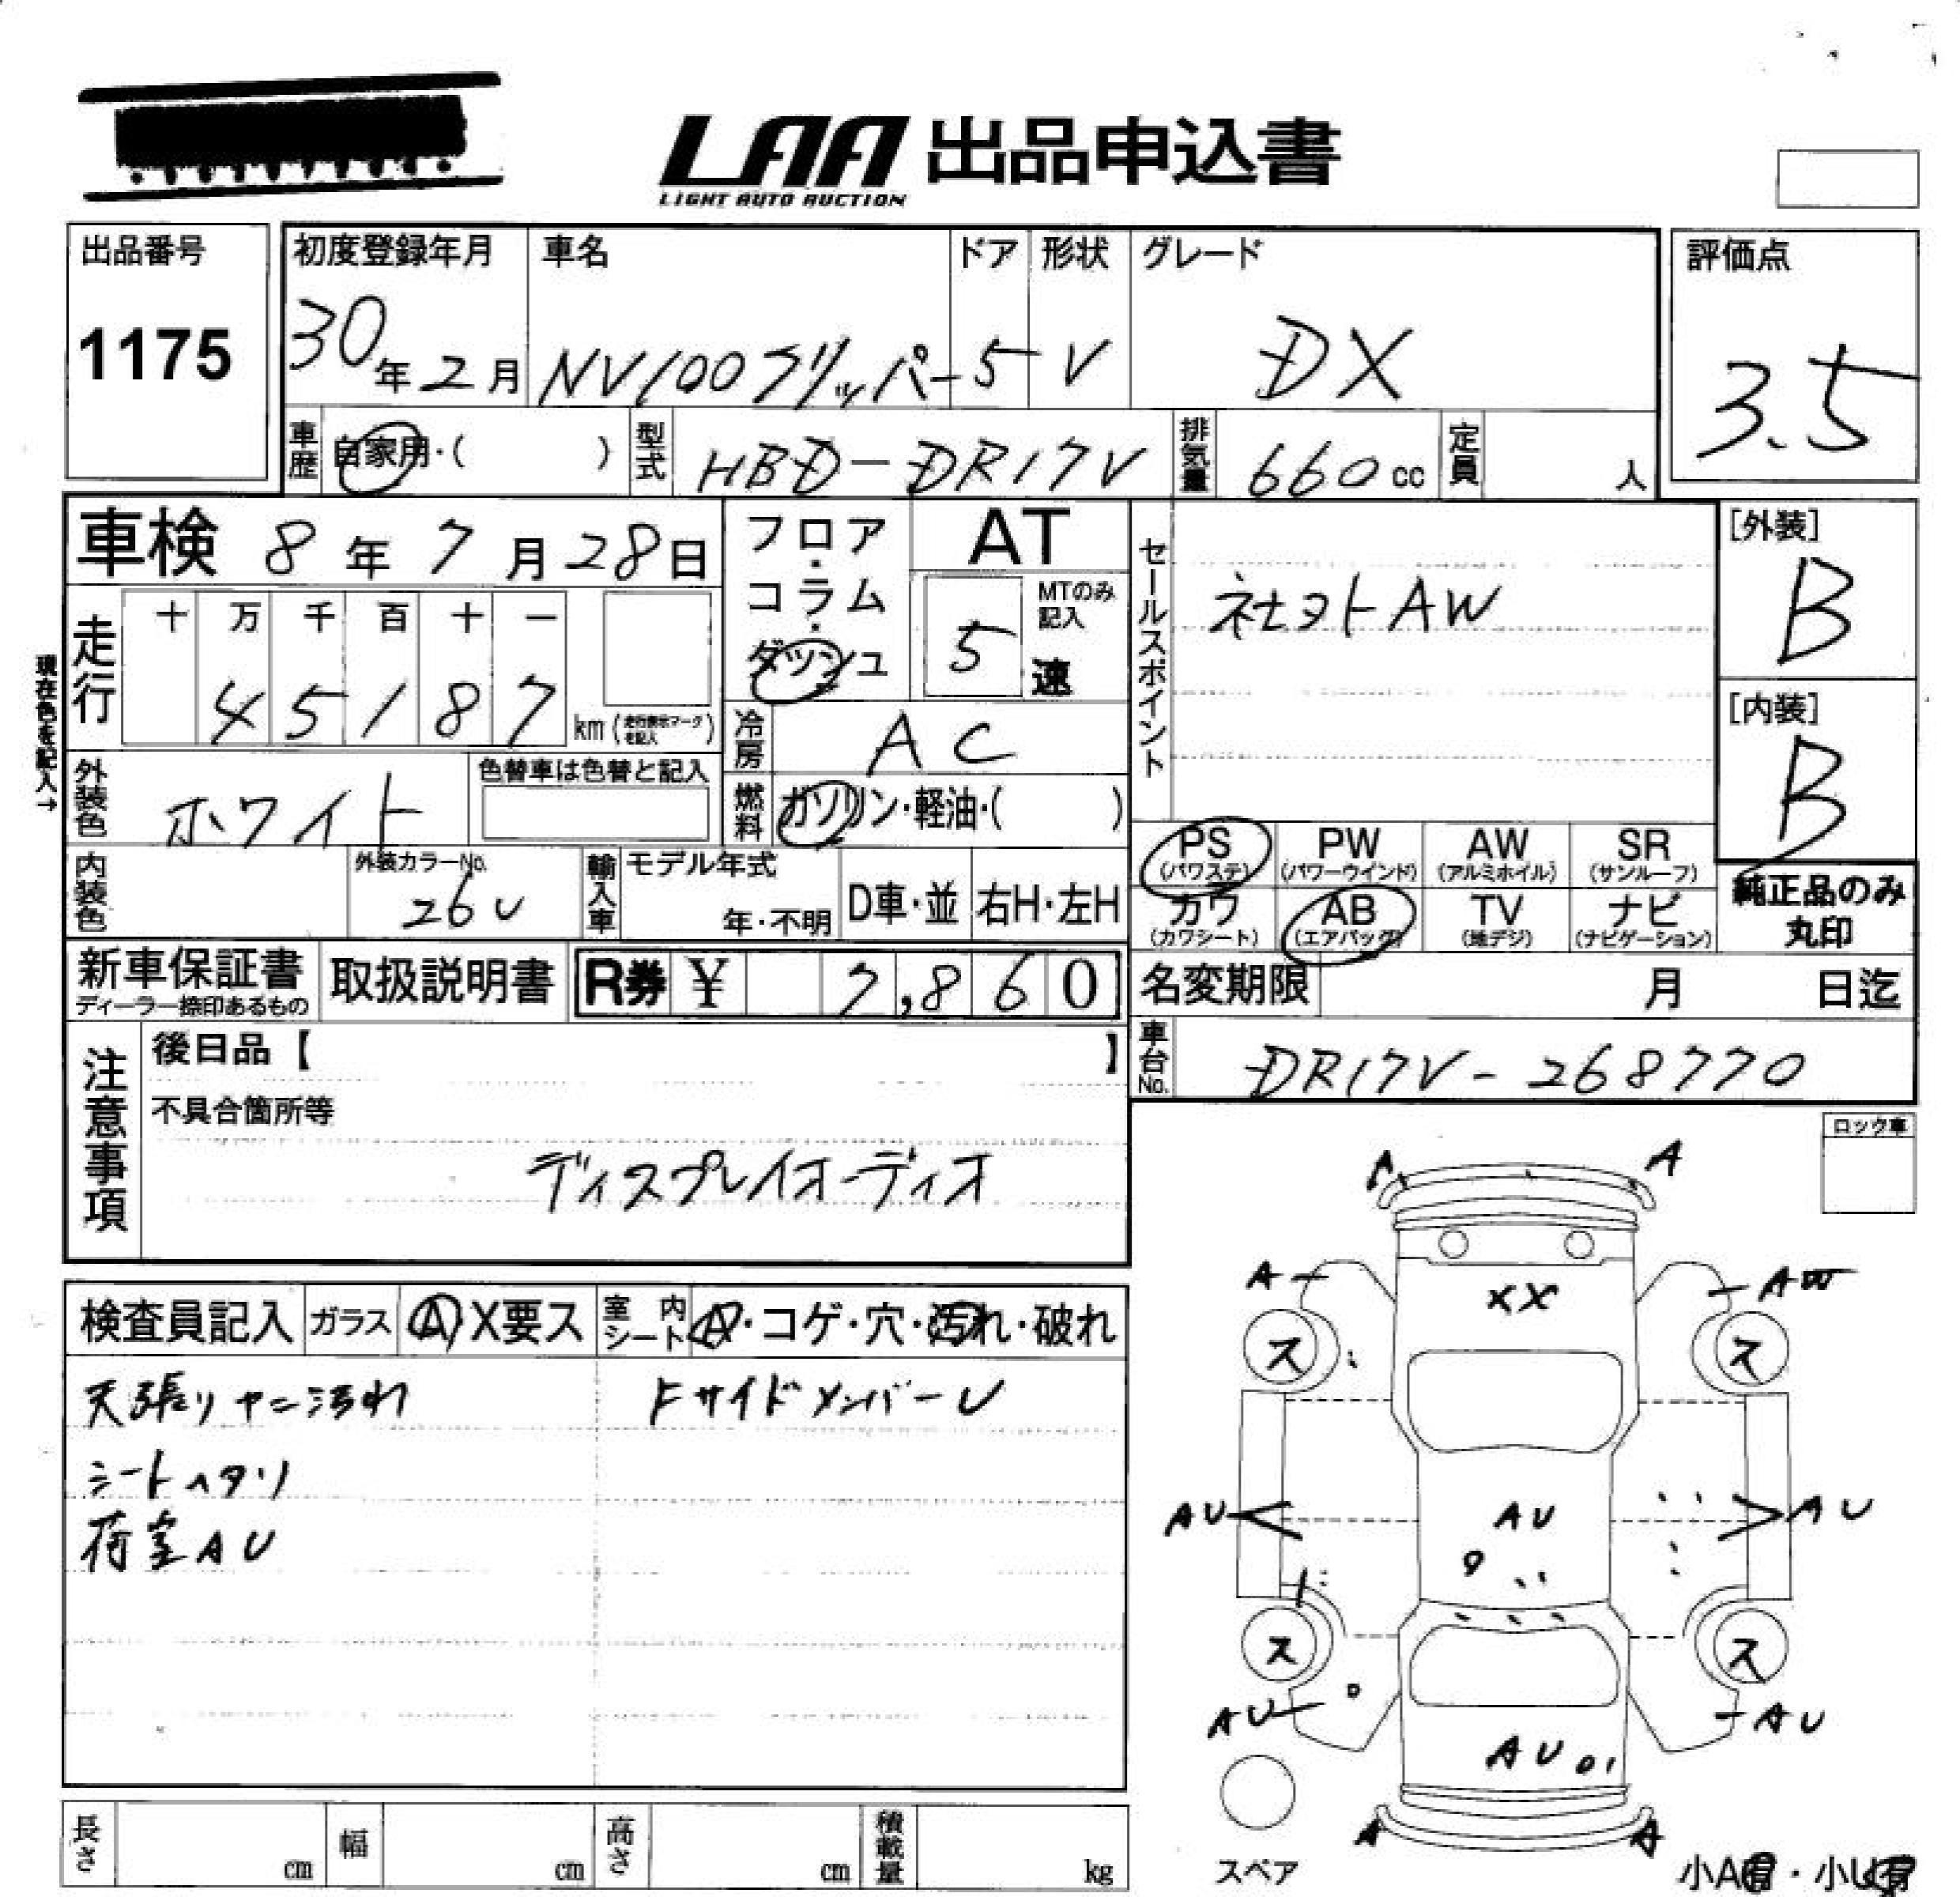 LAA 出品申込書
LIGHT AUTO AUCTION
出品番号
1175
初度登録年月
30年2月
車名
NV100クリッパー
ドア
5
形状
V
グレード
DX
評価点
3.5
車歴
自家用・( )
型式
HBD-DR17V
排気量
660cc
定員
人
車検 8年7月28日
フロア・コラム・ダッシュ
AT
5
MTのみ記入
速
セールスポイント
社外AW
[外装]
B
[内装]
B
現在色を記入→
走行
十 万 千 百 十 一
4 5 1 8 7
km (走行表示マークを記入)
冷房
AC
外装色
ホワイト
色替車は色替と記入
燃料
ガソリン・軽油・( )
PS (パワステ)
PW (パワーウインド)
AW (アルミホイル)
SR (サンルーフ)
カワ (カワシート)
AB (エアバッグ)
TV (地デジ)
ナビ (ナビゲーション)
純正品のみ丸印
内装色
外装カラーNo.
26U
輸入車
モデル年式
年・不明
D車・並
右H・左H
新車保証書
ディーラー捺印あるもの
取扱説明書
R券 ¥ 7,860
名変期限 月 日迄
車台No.
DR17V-268770
注意事項
後日品【 】
不具合箇所等
ディスプレイオーディオ
ロック車
検査員記入
ガラス
A X要ス
室内シート
A・コゲ・穴・汚れ・破れ
天張りヤニ汚れ
FサイドメンバーU
シートヘタリ
荷室AU
A A
A AW
XX
ス ス
AU AU AU
ス ス
AU AU
AU
A A
スペア
小A有・小U有
長さ cm
幅 cm
高さ cm
積載量 kg